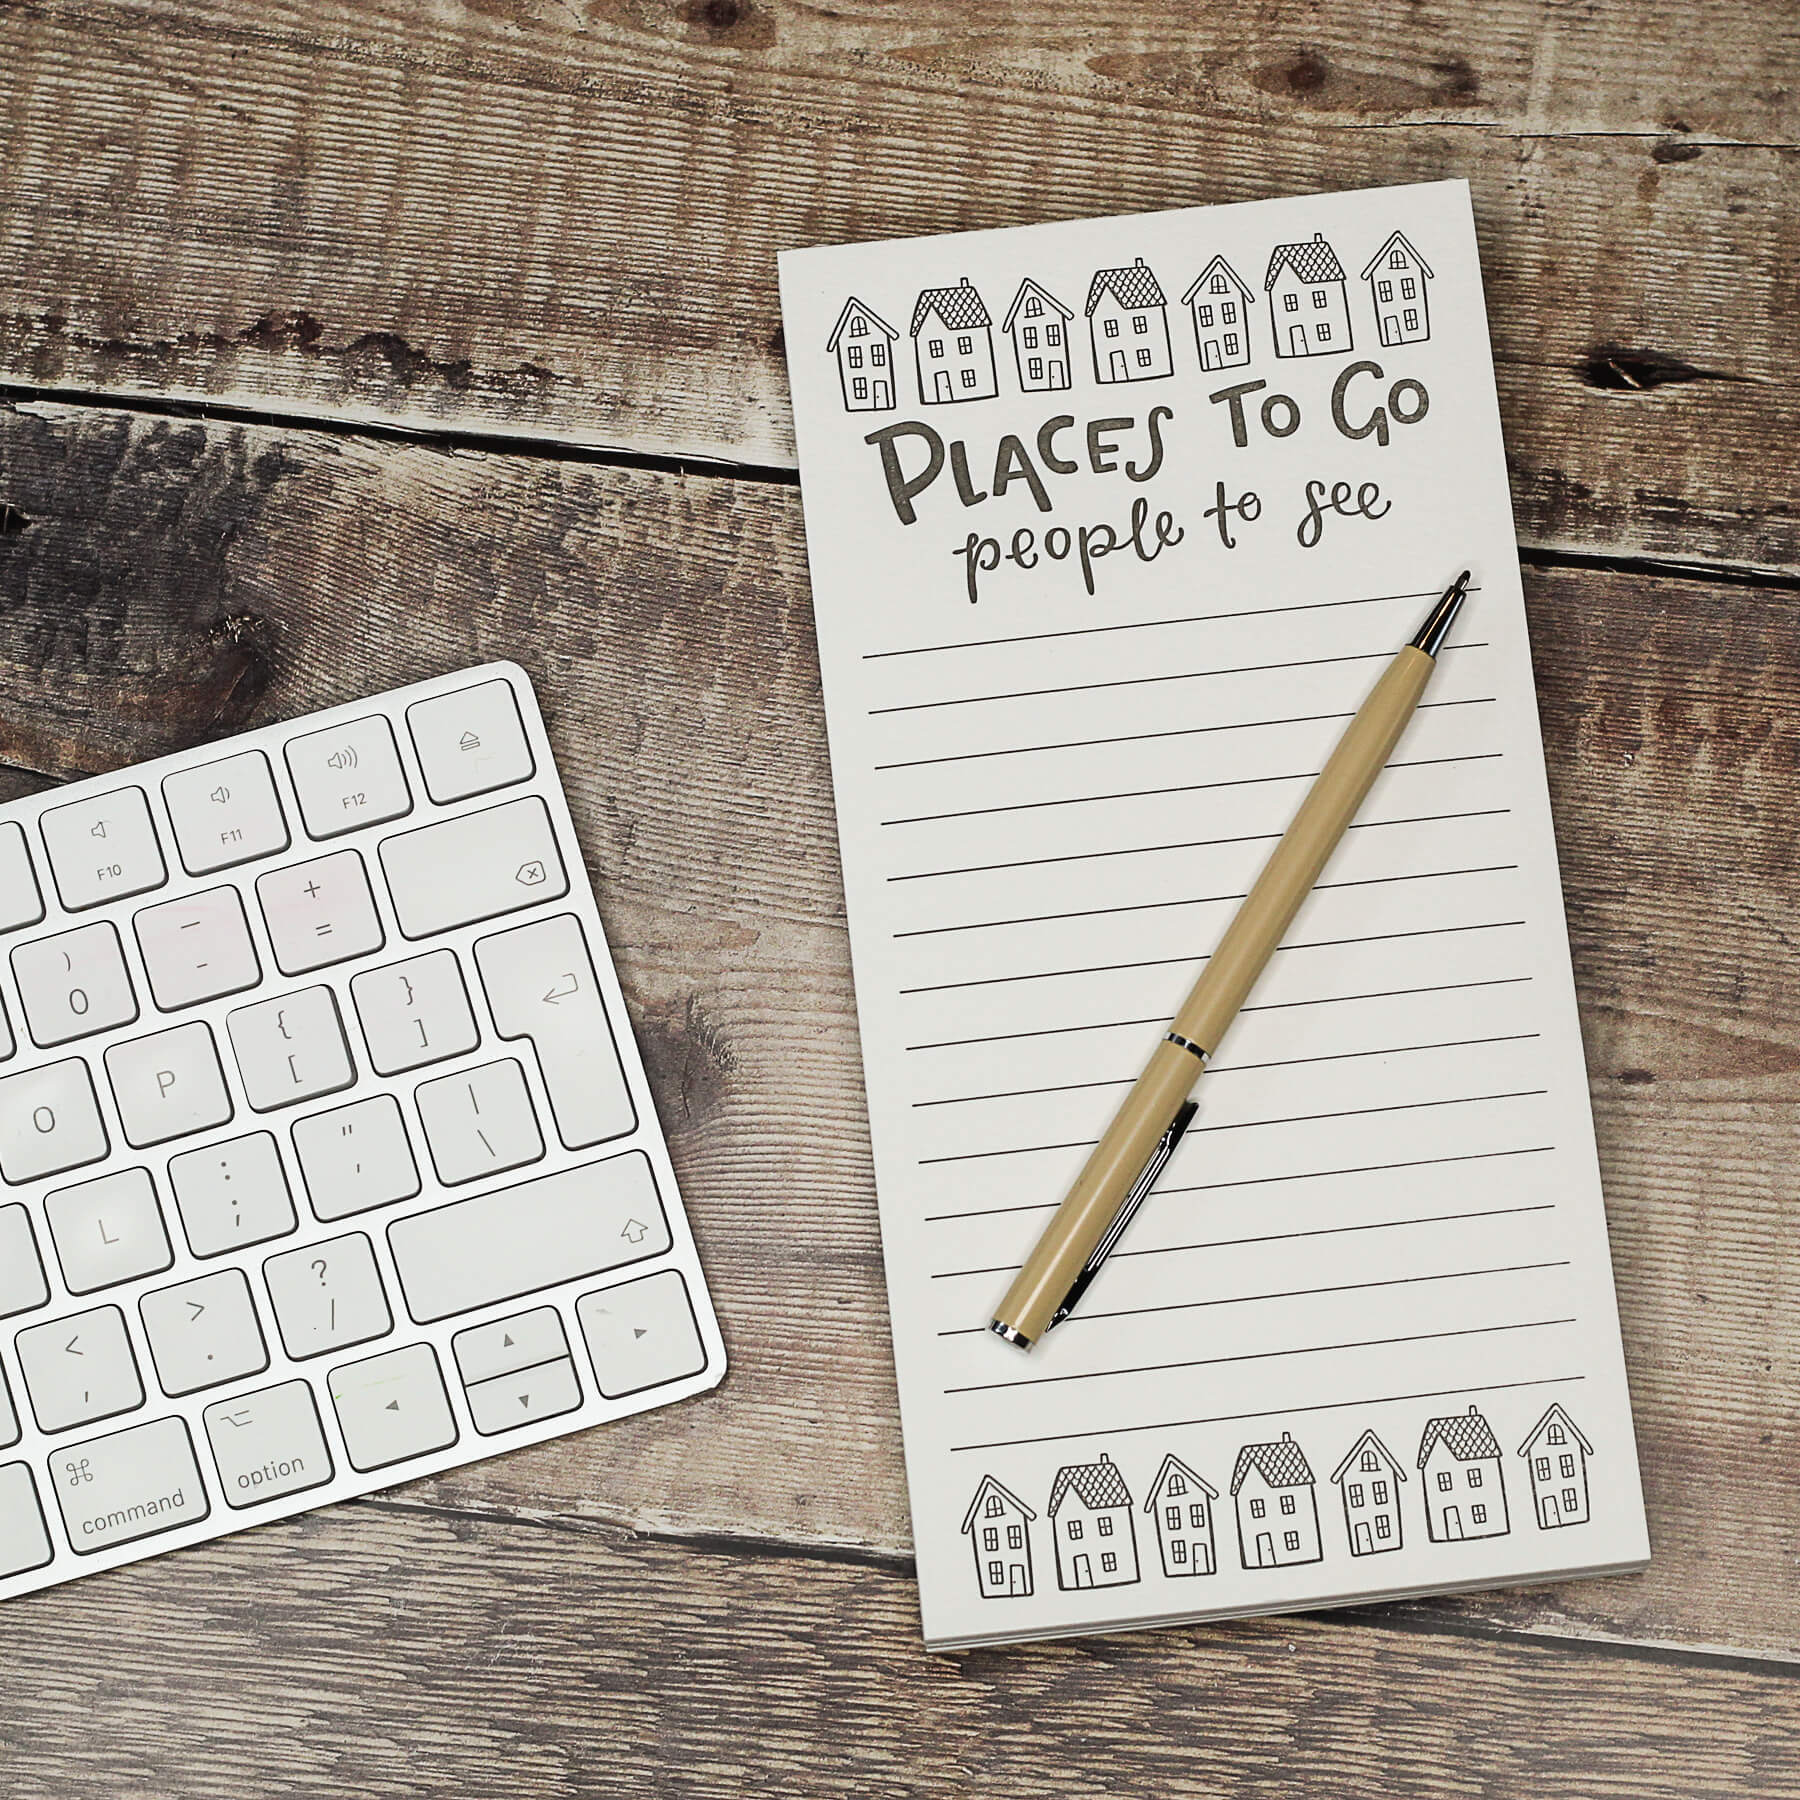 PLACES TO GO
people to see
F10 F11 F12
) 0 — - + =
O P { [ } ]
L : ; " , | \
< , > . ? /
⌘ command ⌥ option